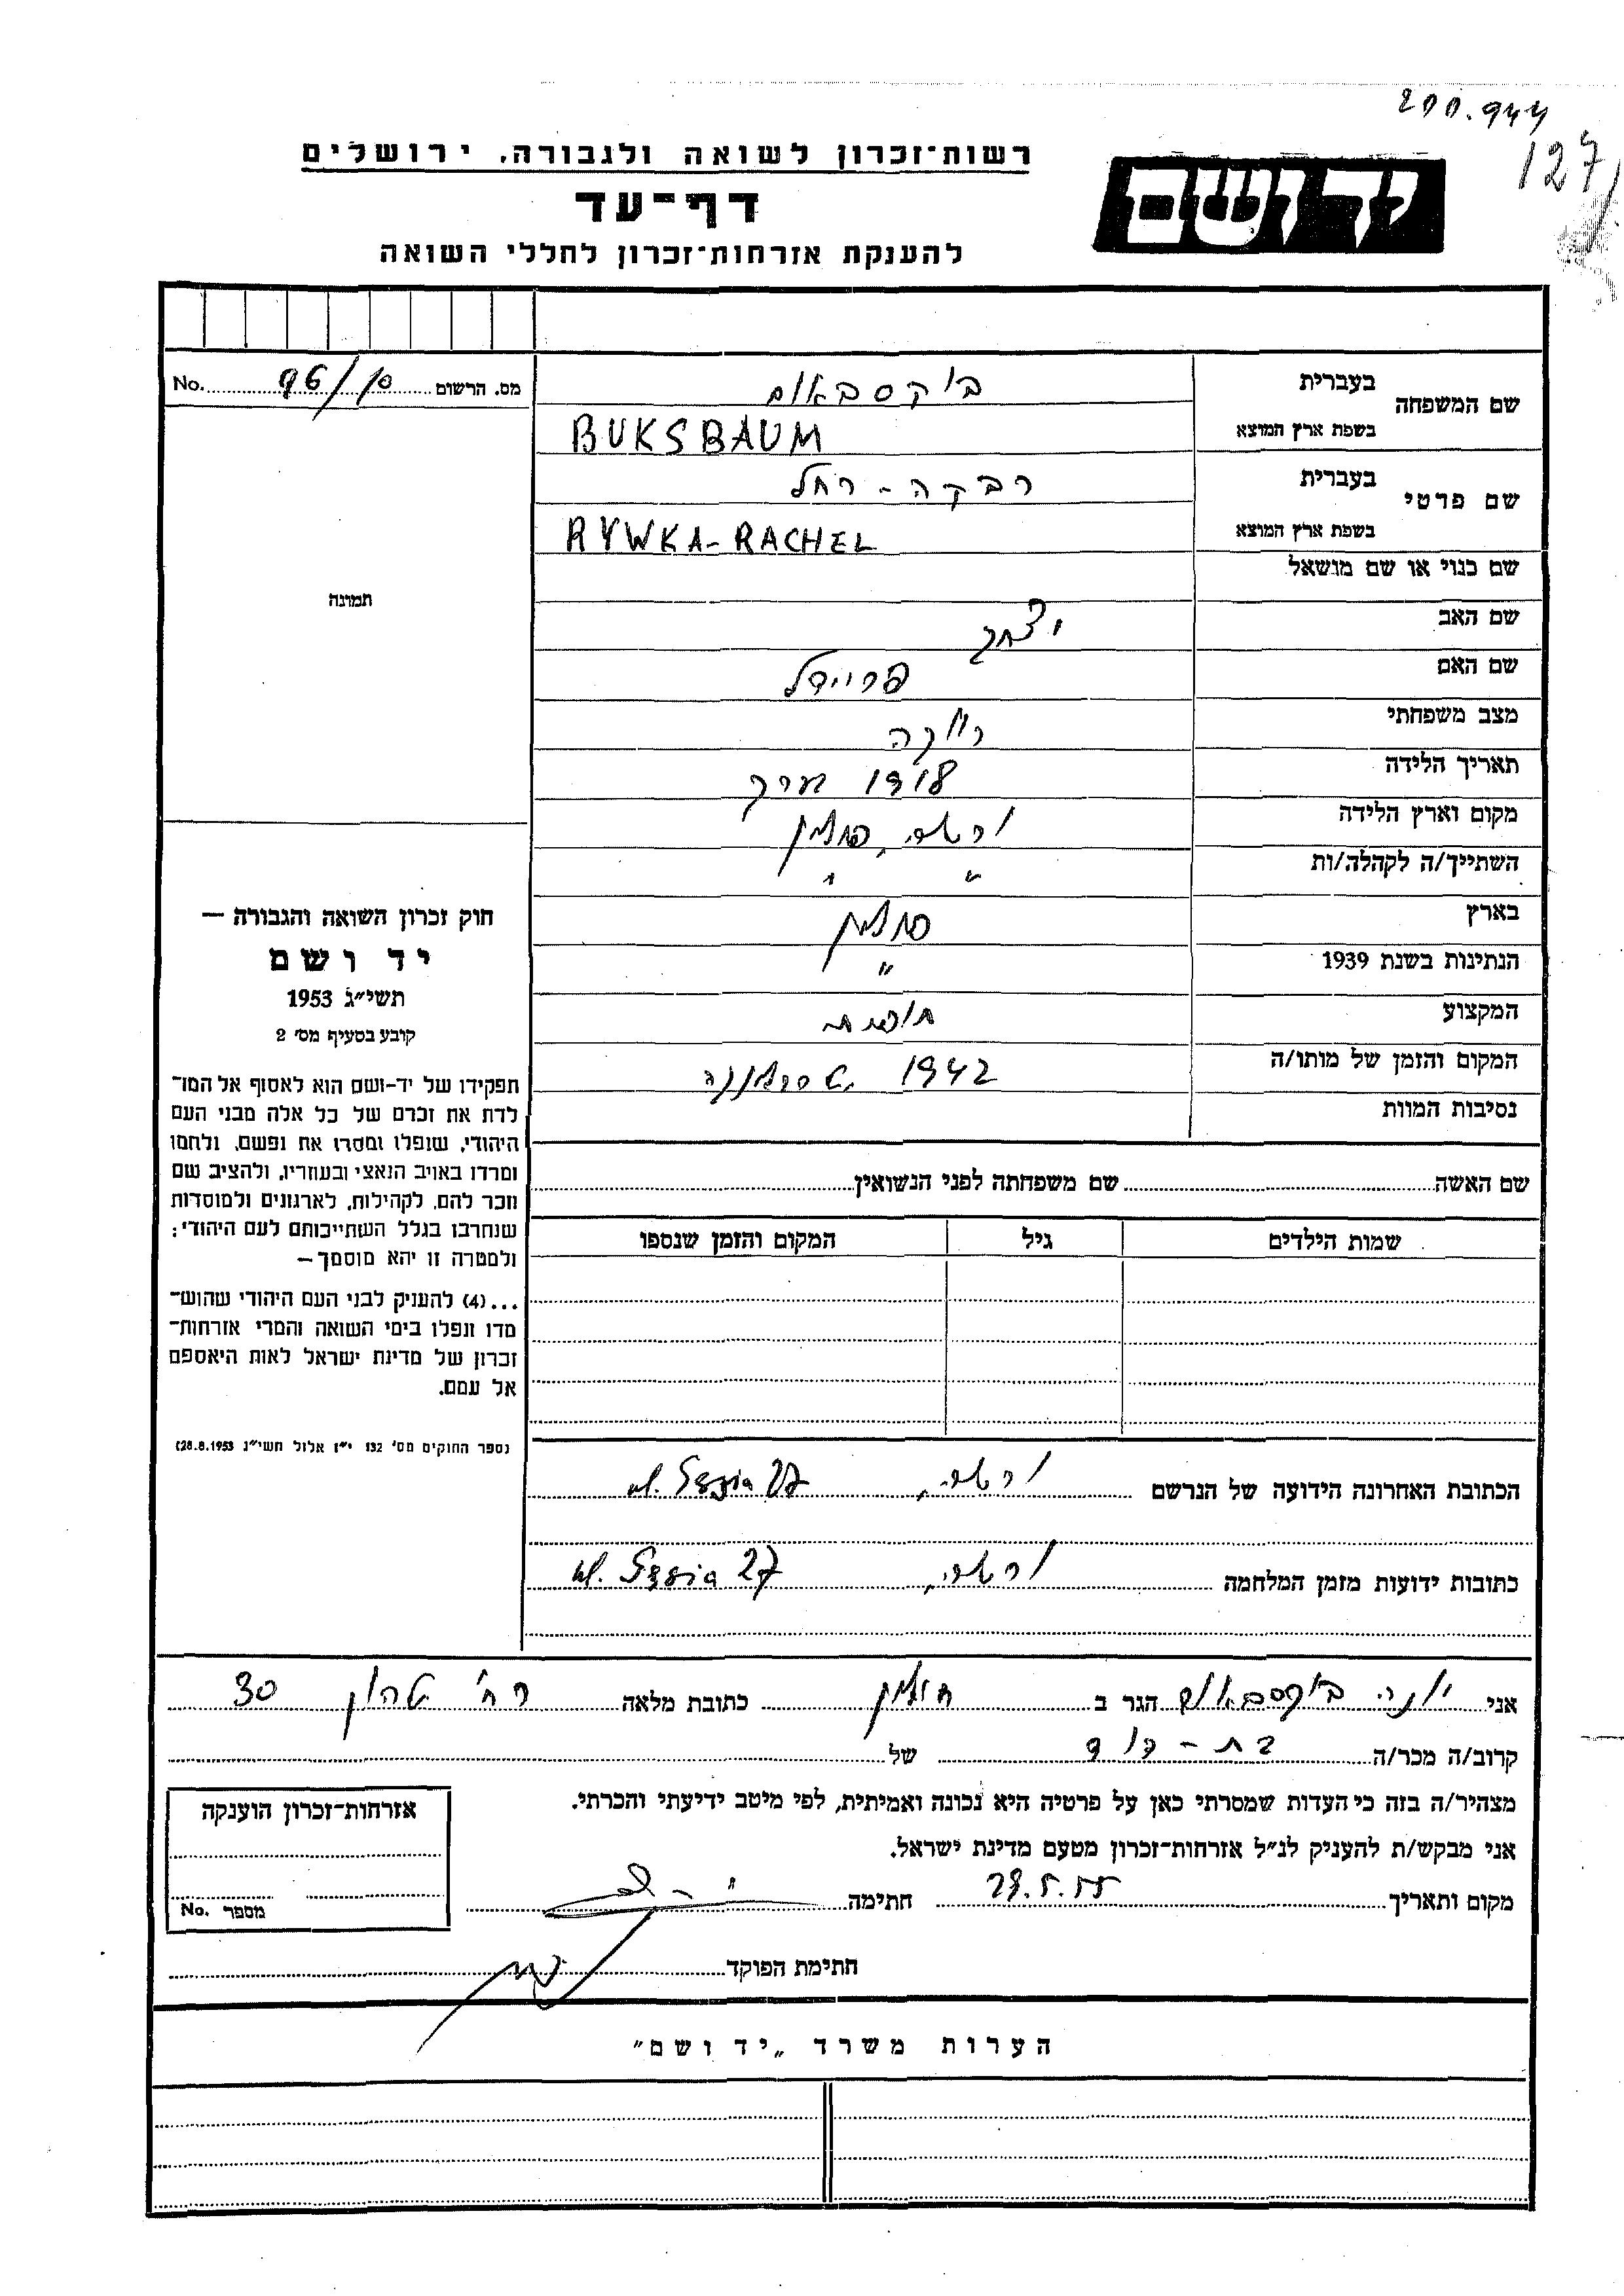 200.944
127
רשות־זכרון לשואה ולגבורה, ירושלים
יד ושם
דף־עד
להענקת אזרחות־זכרון לחללי השואה
מס. הרשום 96/10 No.
שם המשפחה
בעברית בוקסבאום
בשפת ארץ המוצא BUKSBAUM
שם פרטי
בעברית רבקה - רחל
בשפת ארץ המוצא RYWKA-RACHEL
שם כנוי או שם מושאל
שם האב יצחק
תמונה
שם האם פריידל
מצב משפחתי רווקה
תאריך הלידה 1918 בערך
מקום וארץ הלידה ורשה, פולין
השתייך/ה לקהלה/ות " "
בארץ פולין
הנתינות בשנת 1939 "
המקצוע
המקום והזמן של מותו/ה 1942 טרבלינקה
נסיבות המוות
חוק זכרון השואה והגבורה —
יד ושם
תשי״ג 1953
קובע בסעיף מס׳ 2
תפקידו של יד-ושם הוא לאסוף אל המו־
לדת את זכרם של כל אלה מבני העם
היהודי, שנפלו ומסרו את נפשם, נלחמו
ומרדו באויב הנאצי ובעוזריו, ולהציב שם
וזכר להם, לקהילות, לארגונים ולמוסדות
שנחרבו בגלל השתייכותם לעם היהודי;
ולמטרה זו יהא מוסמך—
...(4) להעניק לבני העם היהודי שהוש־
מדו ונפלו בימי השואה והמרי אזרחות־
זכרון של מדינת ישראל לאות היאספם
אל עמם.
(ספר החוקים מס׳ 132 י״ז אלול תשי״ג 28.8.1953)
שם האשה שם משפחתה לפני הנשואין
שמות הילדים גיל המקום והזמן שנספו
הכתובת האחרונה הידועה של הנרשם ורשה, ul. Gęsia 27
כתובות ידועות מזמן המלחמה ורשה, ul. Gęsia 27
אני יונה בוקסבאום הגר ב חולון כתובת מלאה רח׳ 30
קרוב/ה מכר/ה בת - דוד של
מצהיר/ה בזה כי העדות שמסרתי כאן על פרטיה היא נכונה ואמיתית, לפי מיטב ידיעתי והכרתי.
אני מבקש/ת להעניק לנ״ל אזרחות־זכרון מטעם מדינת ישראל.
מקום ותאריך 29.5.55 חתימה
חתימת הפוקד
אזרחות־זכרון הוענקה
מספר No.
הערות משרד „יד ושם״